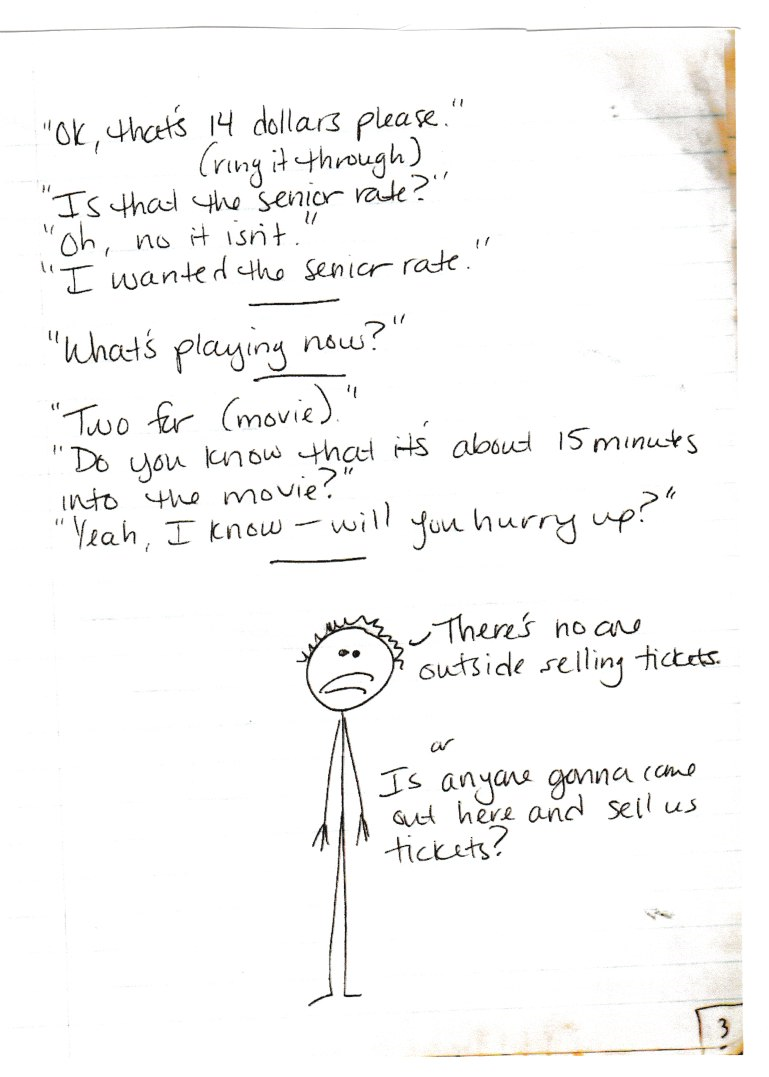 "Ok, that's 14 dollars please."
(ring it through)
"Is that the senior rate?"
"Oh, no it isn't."
"I wanted the senior rate."
"What's playing now?"
"Two for (movie)."
"Do you know that it's about 15 minutes
into the movie?"
"Yeah, I know – will you hurry up?"
There's no one
outside selling tickets.
or
Is anyone gonna come
out here and sell us
tickets?
3